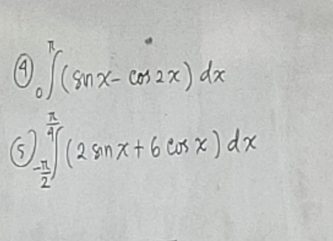 ④ ₀∫^π (sin x - cos 2x) dx
⑤ _{-π/2}∫^{π/4} (2 sin x + 6 cos x) dx